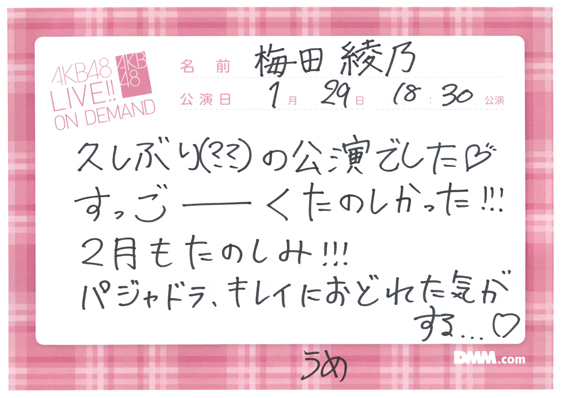 AKB48
LIVE!!
ON DEMAND
AKB
48
名 前 梅田 綾乃
公演日 1月 29日 18:30 公演
久しぶり(ミミ)の公演でした♡
すっご――くたのしかった!!!
2月もたのしみ!!!
パジャドラ、キレイにおどれた気が
する...♡
DMM.com
うめ